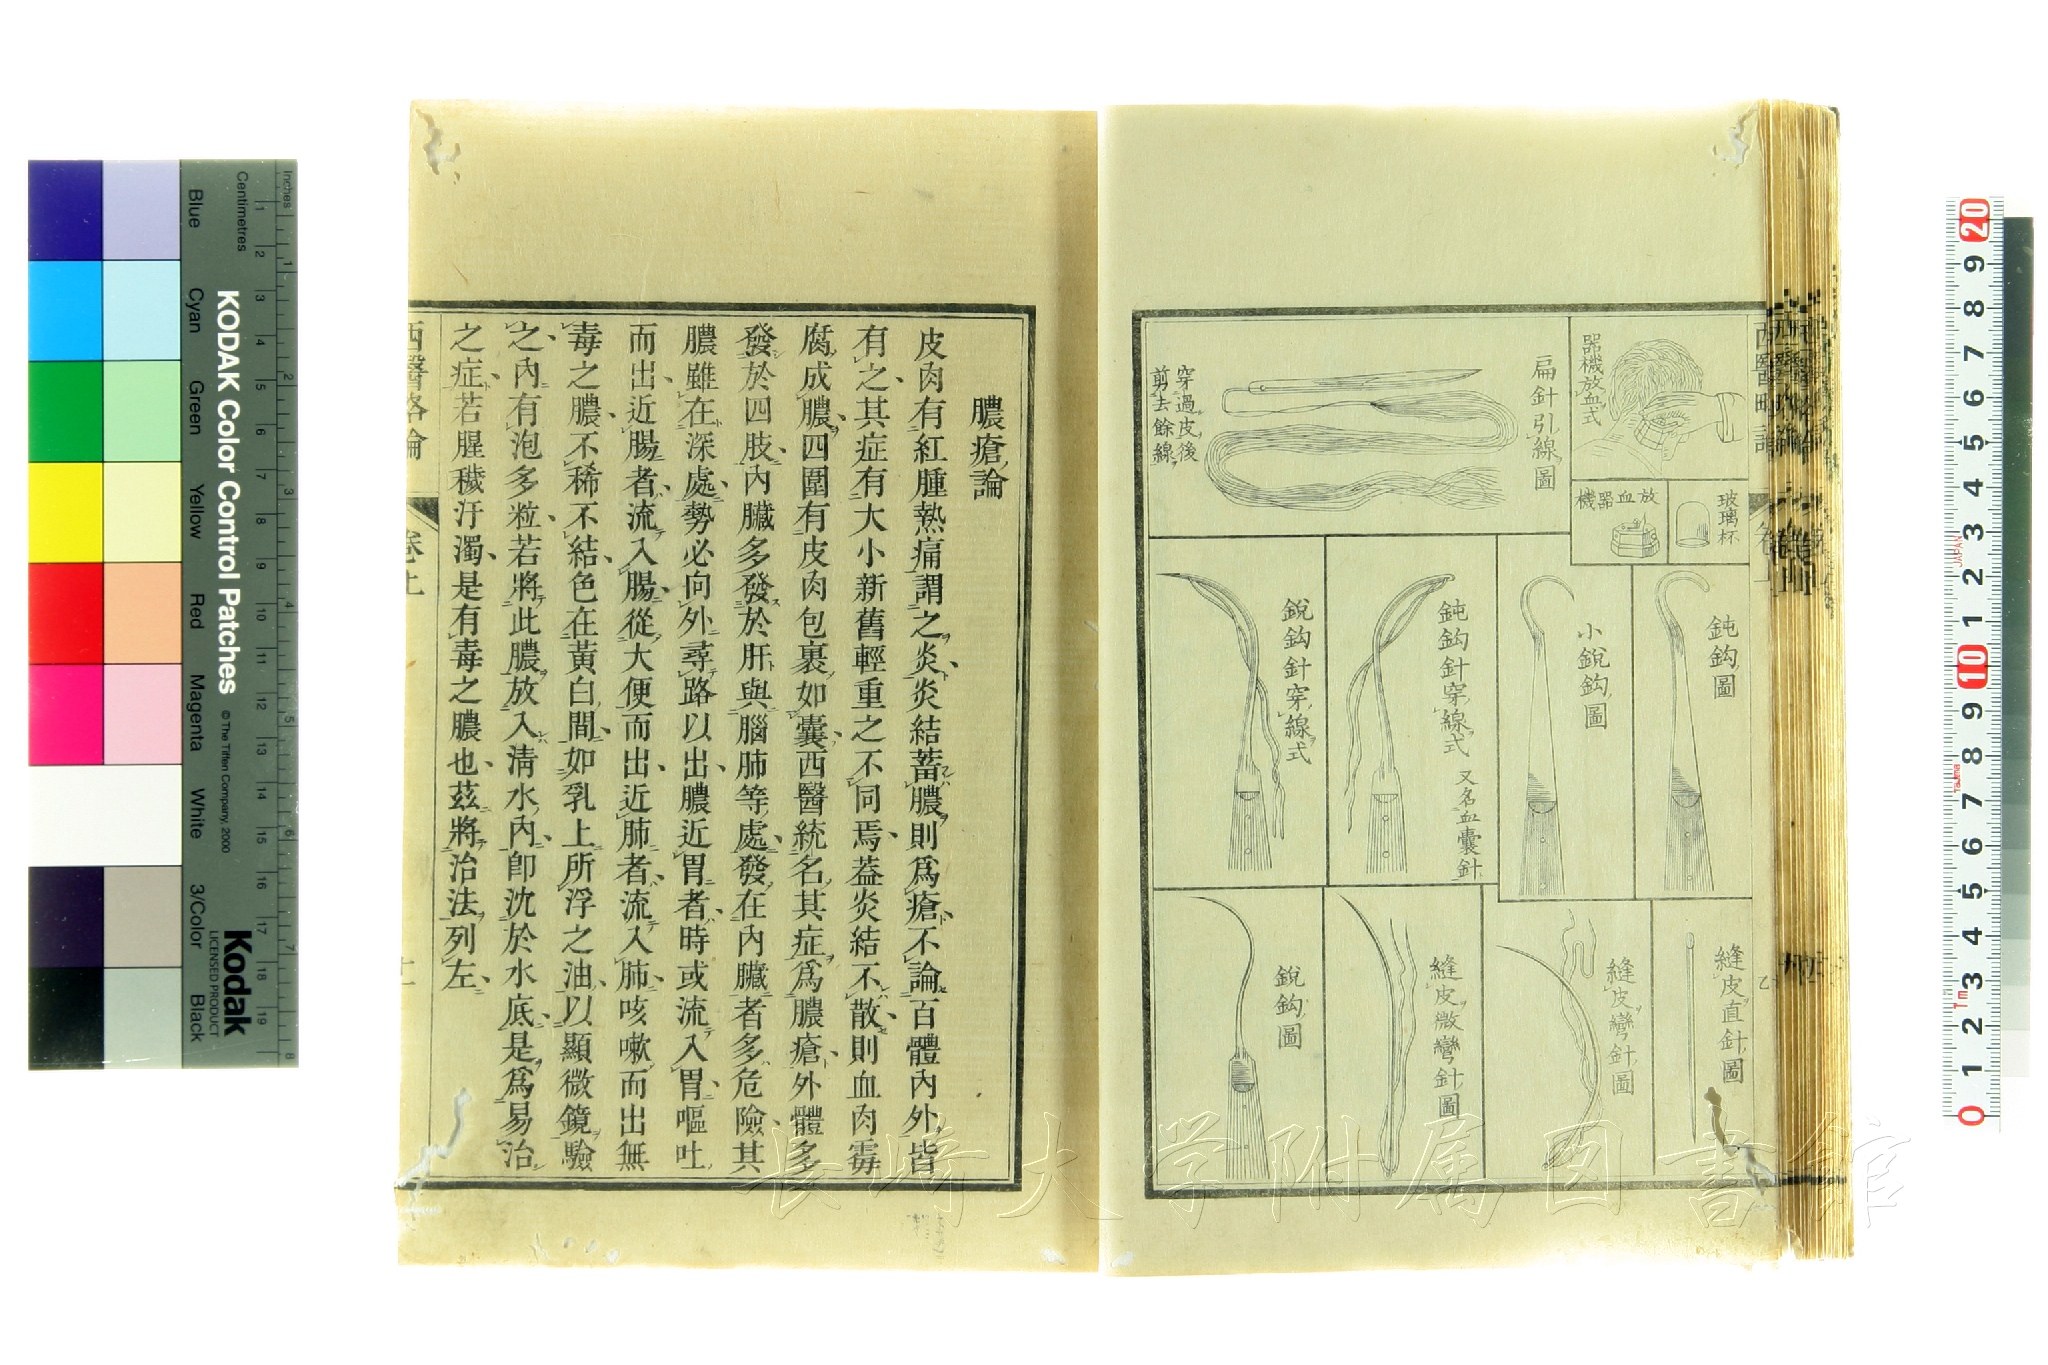 器機放血式
玻璃杯
放血器機
扁針引線圖
穿過皮後
剪去餘線
鈍鈎圖
小銳鈎圖
鈍鈎針穿線式
又名血囊針
銳鈎針穿線式
縫皮直針圖
縫皮彎針圖
縫皮微彎針圖
銳鈎圖
膿瘡論
皮肉有紅腫熱痛謂之炎炎結蓄膿則爲瘡不論百體內外皆
有之其症有大小新舊輕重之不同焉蓋炎結不散則血肉霉
腐成膿四圍有皮肉包裹如囊西醫統名其症爲膿瘡外體多
發於四肢內臟多發於肝與腦肺等處發在內臟者多危險其
膿雖在深處勢必向外尋路以出膿近胃者時或流入胃嘔吐
而出近腸者流入腸從大便而出近肺者流入肺咳嗽而出無
毒之膿不稀不結色在黃白間如乳上所浮之油以顯微鏡驗
之內有泡多粒若將此膿放入清水內卽沈於水底是爲易治
之症若腥穢汙濁是有毒之膿也茲將治法列左
西醫略論
卷上
長崎大学附属図書館
Inches
Centimetres
KODAK Color Control Patches
© The Tiffen Company, 2000
Kodak
LICENSED PRODUCT
Blue
Cyan
Green
Yellow
Red
Magenta
White
3/Color
Black
1 2 3 4 5 6 7 8
1 2 3 4 5 6 7 8 9 10 11 12 13 14 15 16 17 18 19
20 9 8 7 6 5 4 3 2 1 10 9 8 7 6 5 4 3 2 1 0
JAPAN
Tajima